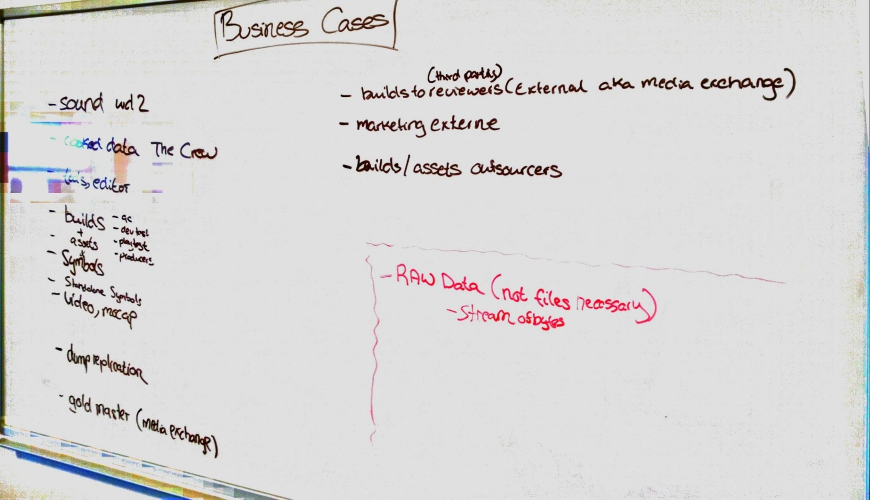 Business Cases
- sound wd2
- cooked data The Crew
- , editor
- builds - qc
+ - dev test
- assets - playtest
+ - producers
- Symbols
- Standalone Symbols
- Video, mocap
- dump replication
- gold master (media exchange)
(third party)
- builds to reviewers (External aka media exchange)
- marketing externe
- builds/assets outsourcers
- RAW Data (not files necessary)
- Stream of bytes